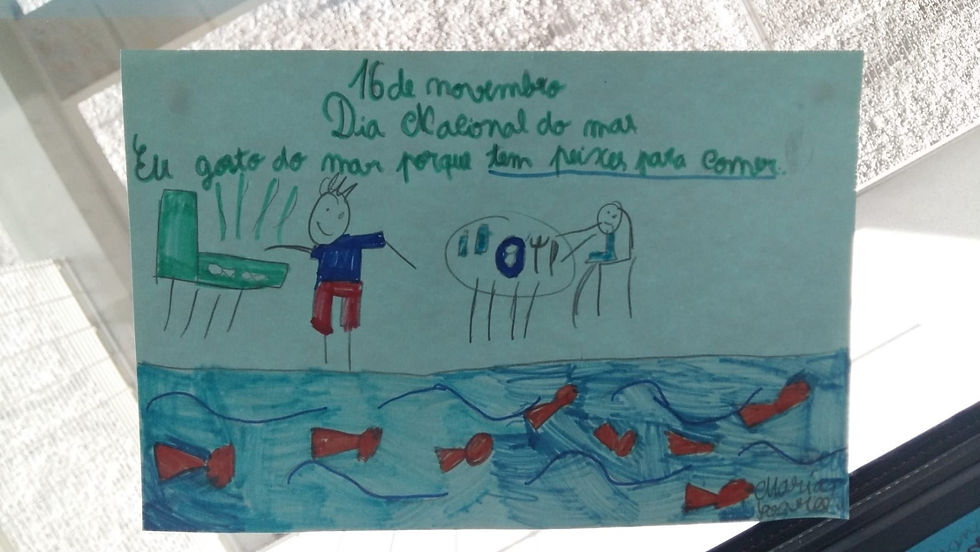 16 de novembro
Dia Nacional do mar
Eu gosto do mar porque tem peixes para comer.
Maria